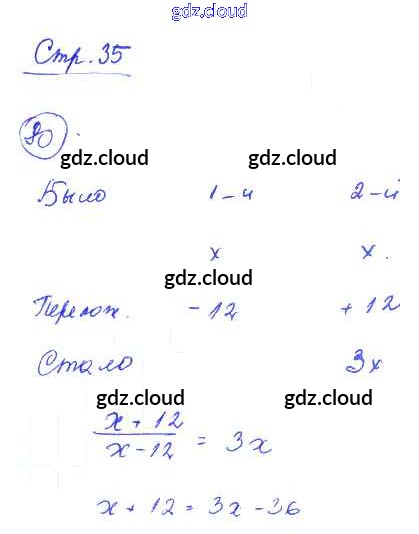 gdz.cloud
Стр. 35
80.
gdz.cloud gdz.cloud
Было 1-й 2-й
x x.
gdz.cloud
Перелож. -12 +12
Стало 3x
gdz.cloud gdz.cloud
x + 12
x - 12 = 3x
x + 12 = 3x - 36